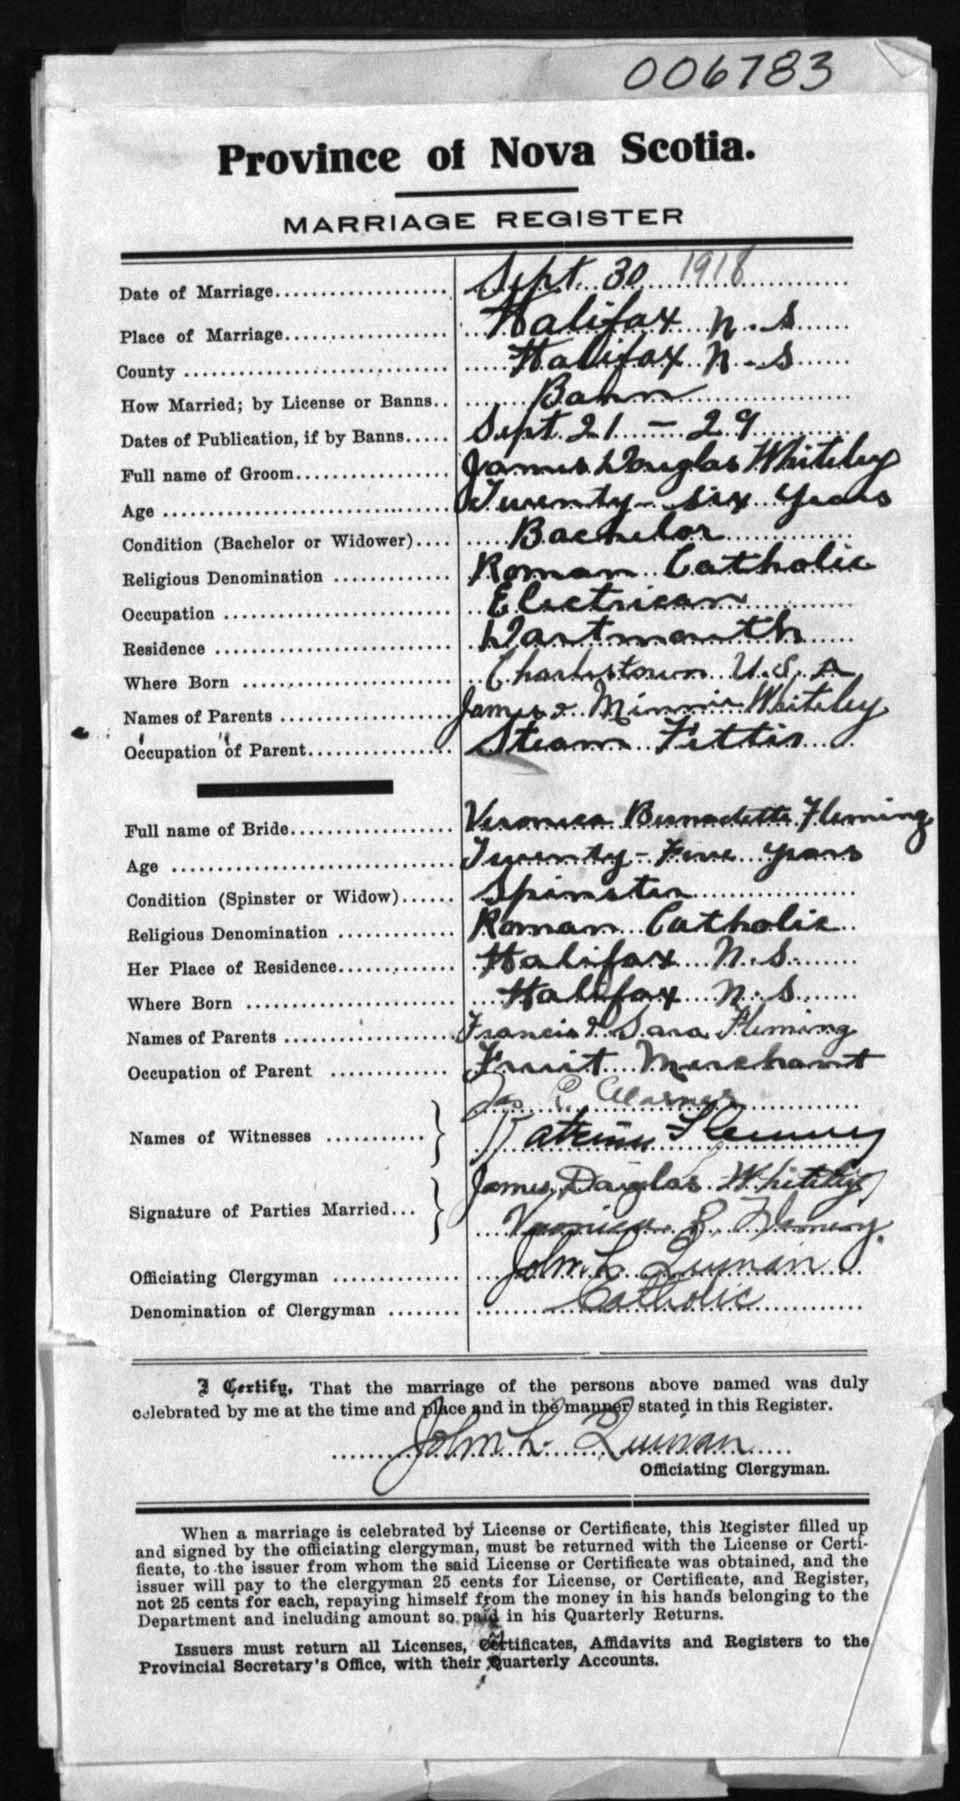 006783
Province of Nova Scotia.
MARRIAGE REGISTER
Date of Marriage.................... Sept. 30 1918
Place of Marriage................... Halifax N.S
County ............................. Halifax N.S
How Married; by License or Banns.. Bann
Dates of Publication, if by Banns..... Sept. 21 - 29
Full name of Groom.................. James Douglas Whiteley
Age ................................ Twenty-six years
Condition (Bachelor or Widower).... Bachelor
Religious Denomination ............. Roman Catholic
Occupation ......................... Electrican
Residence .......................... Dartmouth
Where Born ......................... Charlestown U.S.A
Names of Parents ................... James & Minnie Whiteley
Occupation of Parent................ Steam Fitter
Full name of Bride.................. Veronica Bernadette Fleming
Age ................................ Twenty-Five years
Condition (Spinster or Widow)...... Spinster
Religious Denomination ............. Roman Catholic
Her Place of Residence.............. Halifax N.S.
Where Born ......................... Halifax N.S.
Names of Parents ................... Francis & Sara Fleming
Occupation of Parent ............... Fruit Merchant
Jas
Names of Witnesses ............ }
Fleming
James Douglas Whiteley
Signature of Parties Married... }
Veronica B. Fleming.
Officiating Clergyman .............. John L. Quinan
Denomination of Clergyman ........ Catholic
I Certify, That the marriage of the persons above named was duly
celebrated by me at the time and place and in the manner stated in this Register.
John L. Quinan
Officiating Clergyman.
When a marriage is celebrated by License or Certificate, this Register filled up
and signed by the officiating clergyman, must be returned with the License or Certi-
ficate, to the issuer from whom the said License or Certificate was obtained, and the
issuer will pay to the clergyman 25 cents for License, or Certificate, and Register,
not 25 cents for each, repaying himself from the money in his hands belonging to the
Department and including amount so paid in his Quarterly Returns.
Issuers must return all Licenses, Certificates, Affidavits and Registers to the
Provincial Secretary's Office, with their Quarterly Accounts.